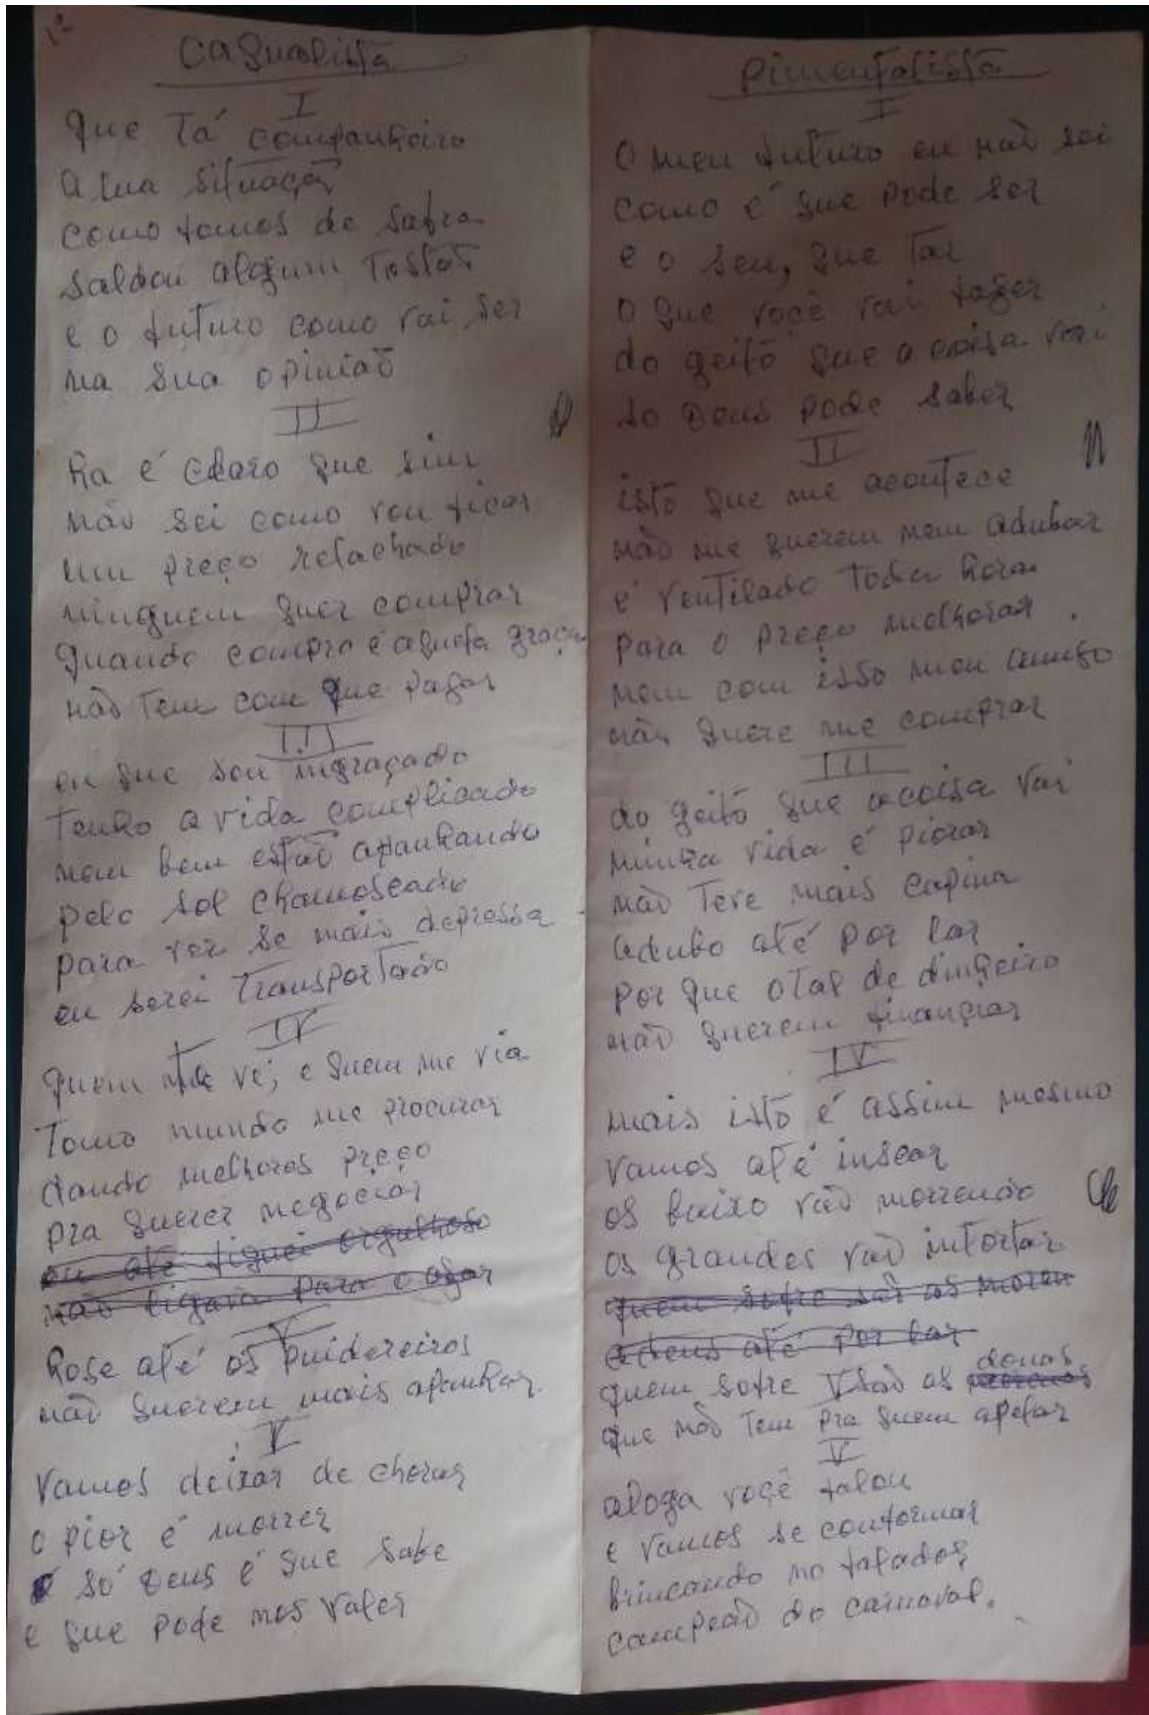 1º
Casualista
I
que tá companheiro
a tua situaçaõ
como famos de safra
saldou algum Tostaõ
e o futuro como vai ser
na sua opiniaõ
II
ha é claro que sim
não sei como vou ficar
um preço relachado
ninguem quer comprar
quando compra é aquela graça
não Tem com que pagar
III
eu que sou ingraçado
Tenho a vida complicado
nem bem estaõ apanhando
pelo sol chamoscado
para ver se mais depressa
eu serei Transportado
IV
quem me vê, e quem me via
Tomo mundo me procurar
dando melhores preço
pra querer negociar
eu até fiquei orgulhoso
não ligava para o azar
V
hose até os
não querem mais apanhar
V
Vamos deixar de chorar
o pior é morrer
só Deus é que sabe
e que pode nos valer
Pimentalista
I
O meu futuro eu não sei
como é que pode ser
e o seu, que Tar
o que voçê vai fazer
do geito que a coisa vai
so Deus pode saber
II
isto que me acontece
não me querem nem adubar
é ventilado toda hora
para o preço melhorar
nem com isso meu amigo
não quere me comprar
III
do geito que acoisa vai
minha vida é piorar
não Teve mais capina
adubo até por lar
por que otal de dinheiro
não querem finançiar
IV
mais isto é assim mesmo
vamos até insear
os baixo vão morrendo
os grandes vão infortar
quem sofre são os moren
adeus até por lar
donas
quem sofre são os
que não Tem pra quem apelar
V
aloga voçê falou
e vamos se conformar
brincando no falador
campeaõ do carnaval.